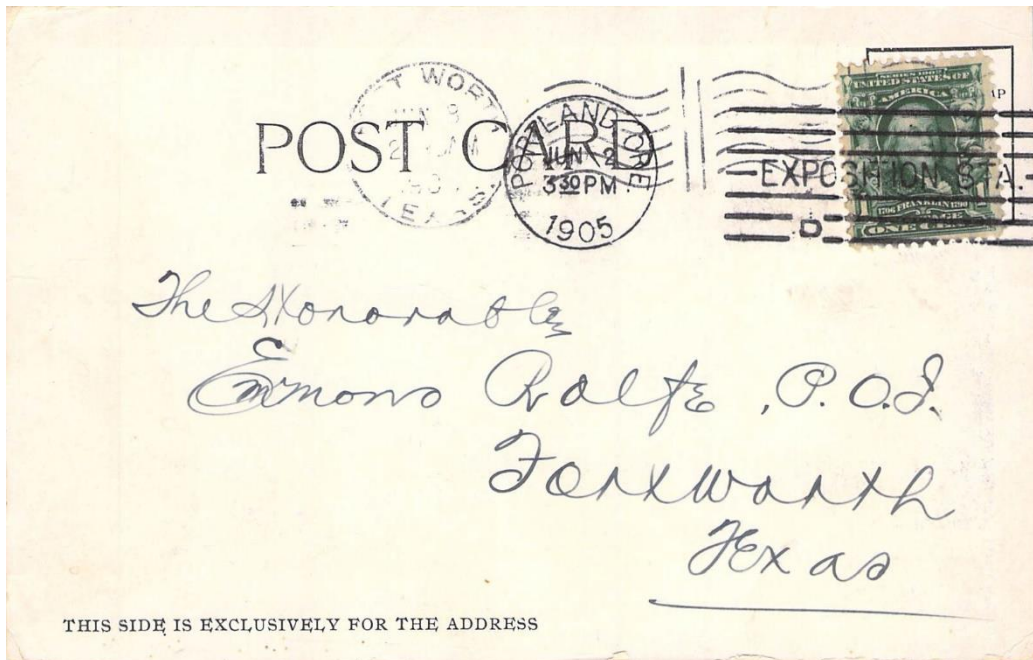 POST CARD
T WORT
TEXAS
PORTLAND, ORE.
JUN 2
3 30 PM
1905
EXPOSITION STA.
D
SERIES 1902
UNITED STATES OF
AMERICA
1706 FRANKLIN 1790
ONE CENT
The Honorable
Emmons Rolfe, P.O.I.
Fort Worth
Texas
THIS SIDE IS EXCLUSIVELY FOR THE ADDRESS